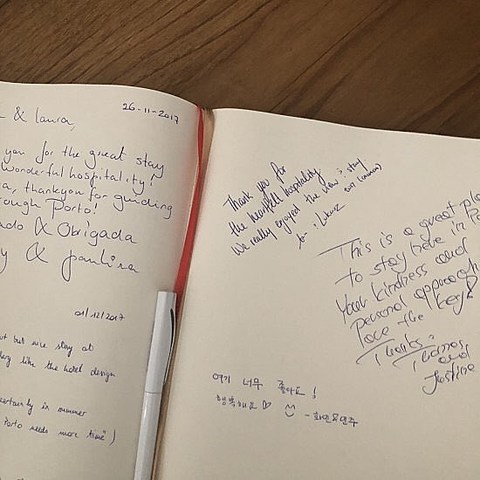 & laura,
26-11-2017
you for the great stay
wonderful hospitality!
a, thankyou for guiding
rough Porto!
ado & Obrigada
y & Paulina
01/12/2017
but nice stay at
like the hotel design
certainly in summer
Porto needs more time")
Thank you for
the heartfelt hospitality
We really enjoyed the stay
This is a great pla
to stay here in Po
Your kindness and
personal approach
Love the
Thanks.
Thomas
and
Justine
여기 너무 좋아요!
행복해요♡ ☺ -